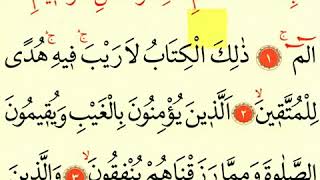 الٓمٓ ۚ ﴿١﴾ ذٰلِكَ الْكِتَابُ لَا رَيْبَ ۚۛ فٖيهِ ۚۛ هُدًى
لِلْمُتَّقٖينَۙ ﴿٢﴾ اَلَّذٖينَ يُؤْمِنُونَ بِالْغَيْبِ وَيُقٖيمُونَ
الصَّلٰوةَ وَمِمَّا رَزَقْنَاهُمْ يُنْفِقُونَۙ ﴿٣﴾ وَالَّذٖينَ